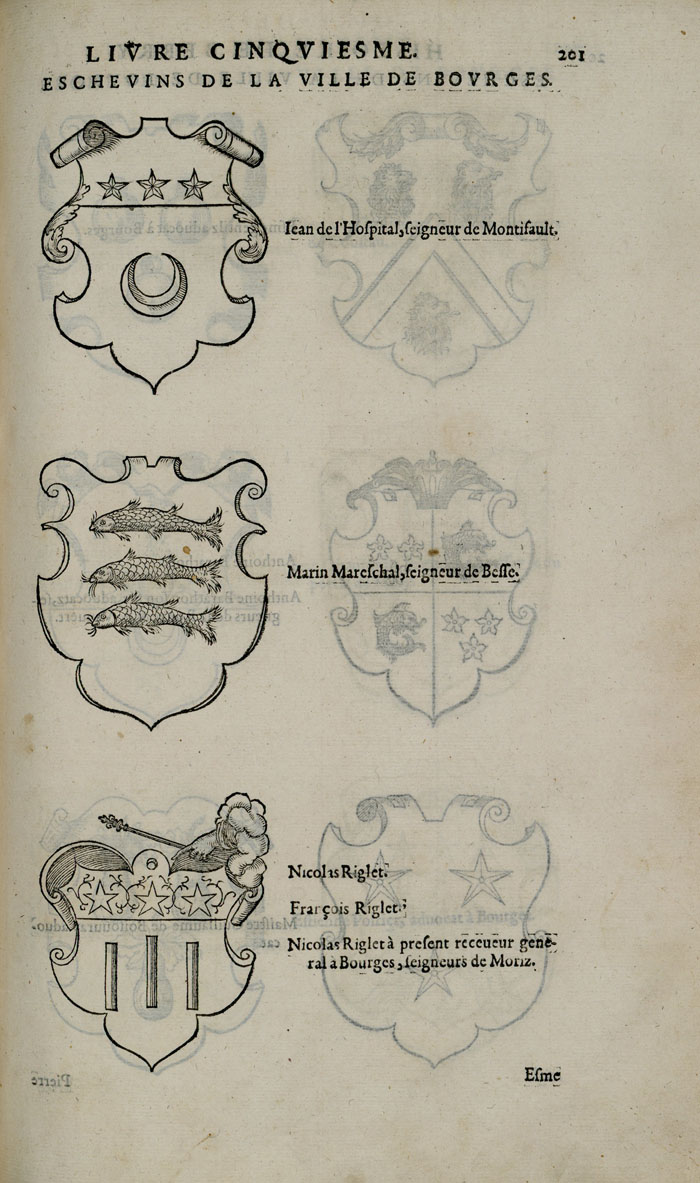 LIVRE CINQVIESME. 201
ESCHEVINS DE LA VILLE DE BOVRGES.
Iean de l'Hoſpital, ſeigneur de Montifault.
Marin Mareſchal, ſeigneur de Beſſe.
Nicolas Riglet.
François Riglet.
Nicolas Riglet à preſent receueur gene-
ral a Bourges, ſeigneurs de Moriz.
Eſme